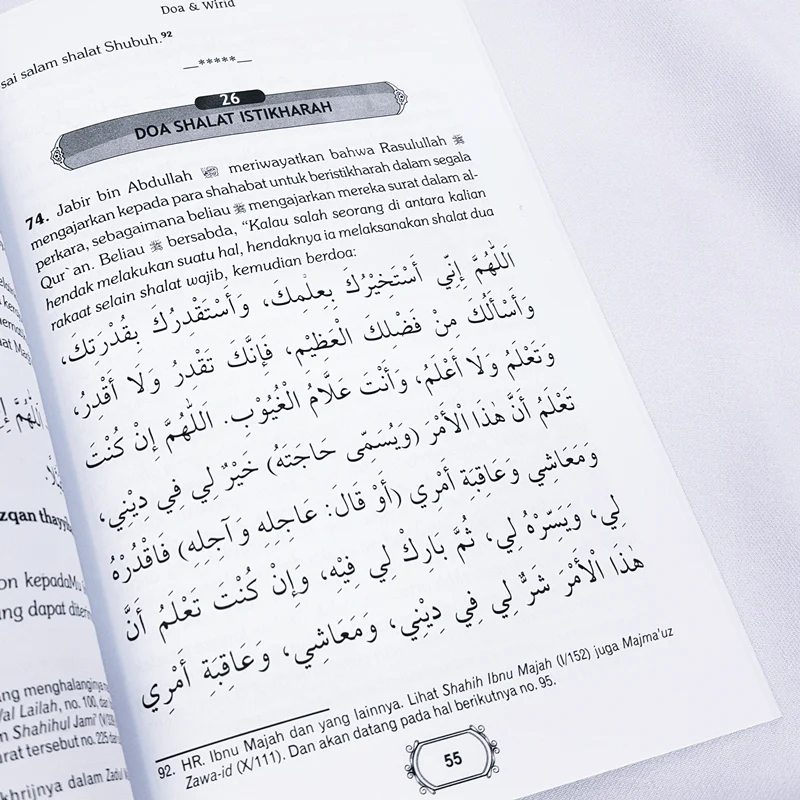 Doa & Wirid
sai salam shalat Shubuh.⁹²
—*****—
26
DOA SHALAT ISTIKHARAH
74. Jabir bin Abdullah meriwayatkan bahwa Rasulullah ﷺ
mengajarkan kepada para shahabat untuk beristikharah dalam segala
perkara, sebagaimana beliau ﷺ mengajarkan mereka surat dalam al-
Qur`an. Beliau ﷺ bersabda, “Kalau salah seorang di antara kalian
hendak melakukan suatu hal, hendaknya ia melaksanakan shalat dua
rakaat selain shalat wajib, kemudian berdoa:
اَللّٰهُمَّ إِنِّي أَسْتَخِيْرُكَ بِعِلْمِكَ، وَأَسْتَقْدِرُكَ بِقُدْرَتِكَ،
وَأَسْأَلُكَ مِنْ فَضْلِكَ الْعَظِيْمِ، فَإِنَّكَ تَقْدِرُ وَلَا أَقْدِرُ،
وَتَعْلَمُ وَلَا أَعْلَمُ، وَأَنْتَ عَلَّامُ الْغُيُوْبِ. اَللّٰهُمَّ إِنْ كُنْتَ
تَعْلَمُ أَنَّ هٰذَا الْأَمْرَ (وَيُسَمِّى حَاجَتَهُ) خَيْرٌ لِي فِي دِيْنِي،
وَمَعَاشِي وَعَاقِبَةِ أَمْرِي (أَوْ قَالَ: عَاجِلِهِ وَآجِلِهِ) فَاقْدُرْهُ
لِي، وَيَسِّرْهُ لِي، ثُمَّ بَارِكْ لِي فِيْهِ، وَإِنْ كُنْتَ تَعْلَمُ أَنَّ
هٰذَا الْأَمْرَ شَرٌّ لِي فِي دِيْنِي، وَمَعَاشِي، وَعَاقِبَةِ أَمْرِي
92. HR. Ibnu Majah dan yang lainnya. Lihat Shahih Ibnu Majah (I/152) juga Majma'uz
Zawa-id (X/111). Dan akan datang pada hal berikutnya no. 95.
55
zqan thayyib
on kepadaMu
ang dapat diter
ang menghalanginya
al Lailah, no. 100, da
Shahihul Jami' (V/
rat tersebut no. 225
khrijnya dalam Zadul